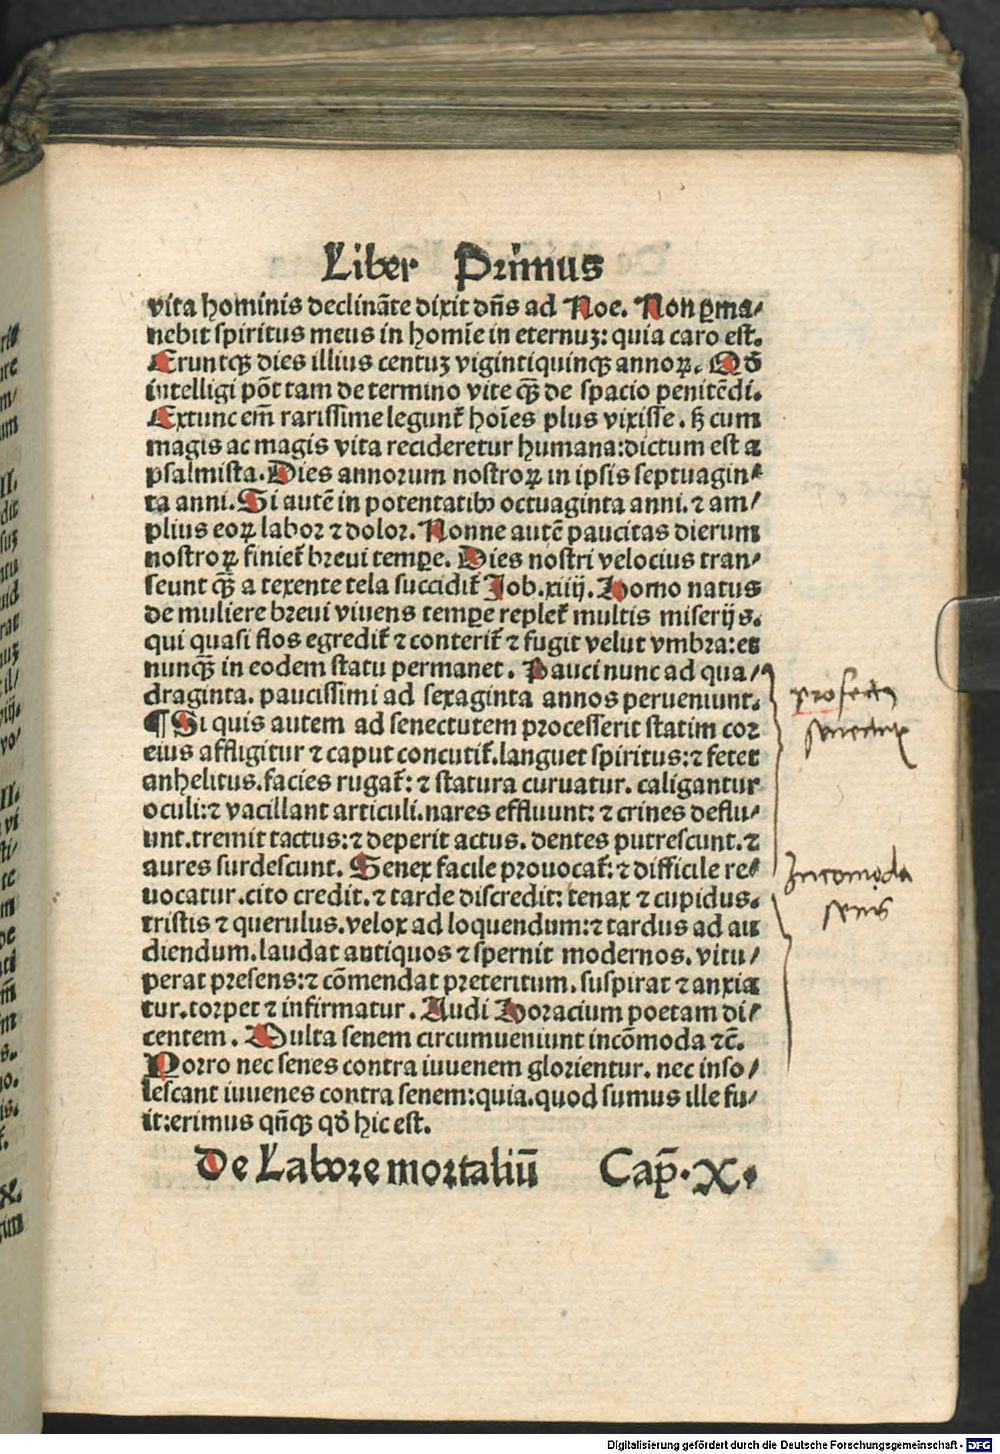 Liber Primus
vita hominis declinãte dixit dñs ad Noe. Non ꝑma⸗
nebit spiritus meus in homĩe in eternuꝫ: quia caro est.
Eruntqꝫ dies illius centuꝫ vigintiquinqꝫ annoꝝ. Qđ
intelligi põt tam de termino vite qꝫ̃ de spacio penitẽdi.
Extunc em̃ rarissime legunt᷑ hoĩes plus vixisse. ſꝫ cum
magis ac magis vita recideretur humana: dictum est a
psalmista. Dies annorum nostroꝝ in ipsis septuagin⸗
ta anni. Si autẽ in potentatibꝫ octuaginta anni. ⁊ am⸗
plius eoꝝ labor ⁊ dolor. Nonne autẽ paucitas dierum
nostroꝝ finiet᷑ brevi temꝑe. Dies nostri velocius tran⸗
seunt qꝫ̃ a texente tela succidit᷑ Job. xiiij. Homo natus
de muliere brevi vivens temꝑe replet᷑ multis miserijs.
qui quasi flos egredit᷑ ⁊ conterit᷑ ⁊ fugit velut vmbra: et
nunqꝫ̃ in eodem statu permanet. Pauci nunc ad qua⸗
draginta. paucissimi ad sexaginta annos perueniunt.
¶ Si quis autem ad senectutem processerit statim cor
eius affligitur ⁊ caput concutit᷑. languet spiritus: ⁊ fetet
anhelitus. facies rugat᷑: ⁊ statura curuatur. caligantur
oculi: ⁊ vacillant articuli. nares effluunt: ⁊ crines deflu⸗
unt. tremit tactus: ⁊ deperit actus. dentes putrescunt. ⁊
aures surdescunt. Senex facile prouocat᷑: ⁊ difficile re⸗
uocatur. cito credit. ⁊ tarde discredit: tenax ⁊ cupidus.
tristis ⁊ querulus. velox ad loquendum: ⁊ tardus ad au
diendum. laudat antiquos ⁊ spernit modernos. vitu⸗
perat presens: ⁊ cõmendat preteritum. suspirat ⁊ anxia
tur. torpet ⁊ infirmatur. Audi Horacium poetam di⸗
centem. Multa senem circumueniunt incõmoda ⁊c̃.
Porro nec senes contra iuuenem glorientur. nec inso⸗
lescant iuuenes contra senem: quia. quod sumus ille fu⸗
it: erimus qñqꝫ qđ hic est.
De Labore mortaliũ Cap̃. X.
Incomoda
senis
Digitalisierung gefördert durch die Deutsche Forschungsgemeinschaft - DFG